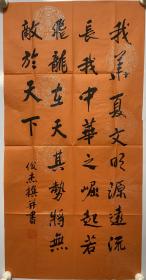 我华夏文明源遠流
長我中華之崛起若
飛龍在天其勢將無
敵於天下
俊杰撰并書